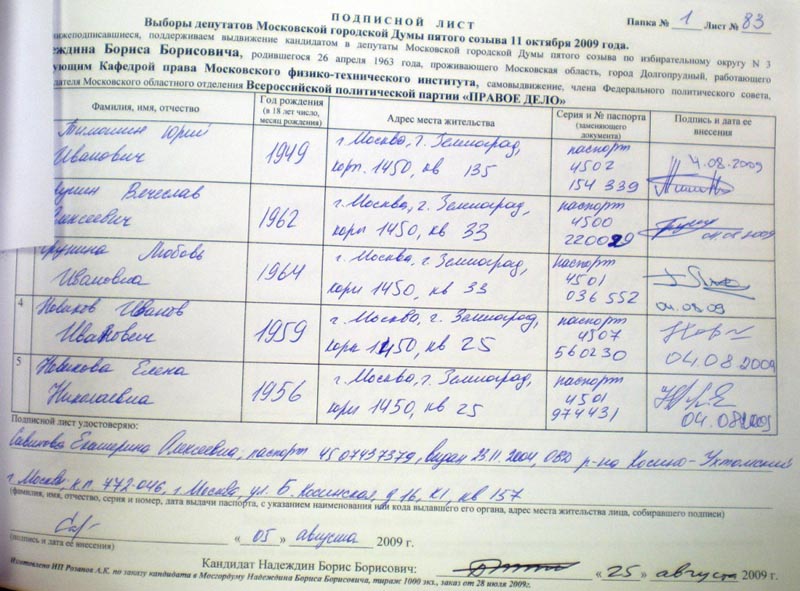 ПОДПИСНОЙ ЛИСТ
Папка № 1 Лист № 83
Выборы депутатов Московской городской Думы пятого созыва 11 октября 2009 года.
нижеподписавшиеся, поддерживаем выдвижение кандидатом в депутаты Московской городской Думы пятого созыва по избирательному округу N 3
еждина Бориса Борисовича, родившегося 26 апреля 1963 года, проживающего Московская область, город Долгопрудный, работающего
ующим Кафедрой права Московского физико-технического института, самовыдвижение, члена Федерального политического совета,
дателя Московского областного отделения Всероссийской политической партии «ПРАВОЕ ДЕЛО»
Фамилия, имя, отчество
Год рождения (в 18 лет число, месяц рождения)
Адрес места жительства
Серия и № паспорта (заменяющего документа)
Подпись и дата ее внесения
Тимошин Юрий
Иванович
1949
г. Москва, г. Зеленоград,
корп. 1450, кв 135
паспорт
4502
154 339
4.08.2009
Вечеслав
лексеевич
1962
г. Москва, г. Зеленоград,
корп 1450, кв 33
паспорт
4500
220029
04.08 2009
Любовь
Ивановна
1964
г. Москва, г. Зеленоград,
корп 1450, кв 33
паспорт
4501
036 552
04.08.09
4
Новиков Иванов
Иванович
1959
г. Москва, г. Зеленоград,
корп 1450, кв 25
паспорт
4507
560230
04.08 2009
5
Новикова Елена
Николаевна
1956
г. Москва, г. Зеленоград,
корп 1450, кв 25
паспорт
4501
974431
04.08 2009
Подписной лист удостоверяю:
Екатерина Алексеевна, паспорт 4507437379, выдан 23 11 2004, ОВД р-на Косино-Ухтомский
г. Москвы, к.п. 772-046, г Москва, ул. Б. Косинская д 16, к1, кв 157
(фамилия, имя, отчество, серия и номер, дата выдачи паспорта, с указанием наименования или кода выдавшего его органа, адрес места жительства лица, собиравшего подписи)
« 05 » августа 2009 г.
(подпись и дата ее внесения)
Кандидат Надеждин Борис Борисович:
« 25 » августа 2009 г.
Изготовлено ИП Розанов А.К. по заказу кандидата в Мосгордуму Надеждина Бориса Борисовича, тираж 1000 экз., заказ от 28 июля 2009г.